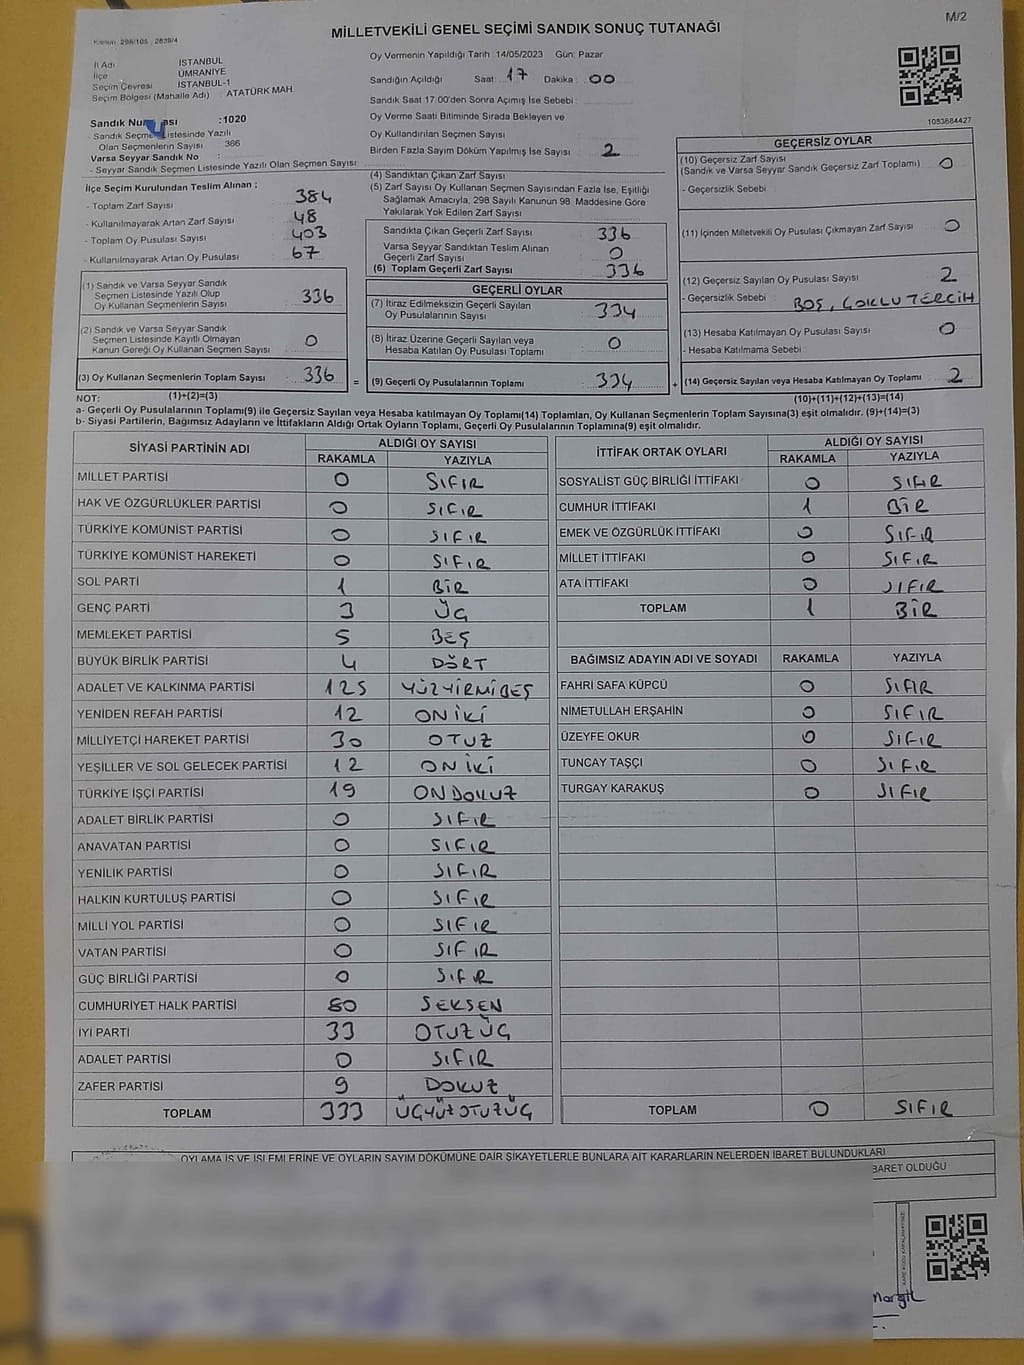 M/2
MİLLETVEKİLİ GENEL SEÇİMİ SANDIK SONUÇ TUTANAĞI
Kanun: 298/105 : 2839/4
İl Adı : İSTANBUL
İlçe : ÜMRANİYE
Seçim Çevresi : İSTANBUL-1
Seçim Bölgesi (Mahalle Adı) : ATATÜRK MAH.
Sandık Numarası :1020
- Sandık Seçmen Listesinde Yazılı
Olan Seçmenlerin Sayısı : 366
Varsa Seyyar Sandık No :
- Seyyar Sandık Seçmen Listesinde Yazılı Olan Seçmen Sayısı
Oy Vermenin Yapıldığı Tarih : 14/05/2023 Gün: Pazar
Sandığın Açıldığı Saat: 17 Dakika : 00
Sandık Saat 17.00'den Sonra Açımış İse Sebebi :
Oy Verme Saati Bitiminde Sırada Bekleyen ve
Oy Kullandırılan Seçmen Sayısı
Birden Fazla Sayım Döküm Yapılmış İse Sayısı : 2
1053684427
İlçe Seçim Kurulundan Teslim Alınan ;
- Toplam Zarf Sayısı : 384
- Kullanılmayarak Artan Zarf Sayısı : 48
- Toplam Oy Pusulası Sayısı : 403
- Kullanılmayarak Artan Oy Pusulası : 67
(1) Sandık ve Varsa Seyyar Sandık
Seçmen Listesinde Yazılı Olup
Oy Kullanan Seçmenlerin Sayısı : 336
(2) Sandık ve Varsa Seyyar Sandık
Seçmen Listesinde Kayıtlı Olmayan
Kanun Gereği Oy Kullanan Seçmen Sayısı : 0
(3) Oy Kullanan Seçmenlerin Toplam Sayısı : 336 =
(1)+(2)=(3)
(4) Sandıktan Çıkan Zarf Sayısı
(5) Zarf Sayısı Oy Kullanan Seçmen Sayısından Fazla İse, Eşitliği
Sağlamak Amacıyla, 298 Sayılı Kanunun 98. Maddesine Göre
Yakılarak Yok Edilen Zarf Sayısı
Sandıkta Çıkan Geçerli Zarf Sayısı 336
Varsa Seyyar Sandıktan Teslim Alınan
Geçerli Zarf Sayısı 0
(6) Toplam Geçerli Zarf Sayısı 336
GEÇERLİ OYLAR
(7) İtiraz Edilmeksizin Geçerli Sayılan
Oy Pusulalarının Sayısı : 334
(8) İtiraz Üzerine Geçerli Sayılan veya
Hesaba Katılan Oy Pusulası Toplamı : 0
(9) Geçerli Oy Pusulalarının Toplamı : 334 +
GEÇERSİZ OYLAR
(10) Geçersiz Zarf Sayısı
(Sandık ve Varsa Seyyar Sandık Geçersiz Zarf Toplamı) : 0
- Geçersizlik Sebebi
(11) İçinden Milletvekili Oy Pusulası Çıkmayan Zarf Sayısı : 0
(12) Geçersiz Sayılan Oy Pusulası Sayısı : 2
- Geçersizlik Sebebi : BOŞ, ÇOKLU TERCİH
(13) Hesaba Katılmayan Oy Pusulası Sayısı : 0
- Hesaba Katılmama Sebebi :
(14) Geçersiz Sayılan veya Hesaba Katılmayan Oy Toplamı : 2
(10)+(11)+(12)+(13)=(14)
NOT:
a- Geçerli Oy Pusulalarının Toplamı(9) ile Geçersiz Sayılan veya Hesaba katılmayan Oy Toplamı(14) Toplamları, Oy Kullanan Seçmenlerin Toplam Sayısına(3) eşit olmalıdır. (9)+(14)=(3)
b- Siyasi Partilerin, Bağımsız Adayların ve İttifakların Aldığı Ortak Oyların Toplamı, Geçerli Oy Pusulalarının Toplamına(9) eşit olmalıdır.
SİYASİ PARTİNİN ADI ALDIĞI OY SAYISI
RAKAMLA YAZIYLA
MİLLET PARTİSİ 0 SIFIR
HAK VE ÖZGÜRLÜKLER PARTİSİ 0 SIFIR
TÜRKİYE KOMÜNİST PARTİSİ 0 SIFIR
TÜRKİYE KOMÜNİST HAREKETİ 0 SIFIR
SOL PARTİ 1 BİR
GENÇ PARTİ 3 ÜÇ
MEMLEKET PARTİSİ 5 BEŞ
BÜYÜK BİRLİK PARTİSİ 4 DÖRT
ADALET VE KALKINMA PARTİSİ 125 YÜZYİRMİBEŞ
YENİDEN REFAH PARTİSİ 12 ONİKİ
MİLLİYETÇİ HAREKET PARTİSİ 30 OTUZ
YEŞİLLER VE SOL GELECEK PARTİSİ 12 ONİKİ
TÜRKİYE İŞÇİ PARTİSİ 19 ONDOKUZ
ADALET BİRLİK PARTİSİ 0 SIFIR
ANAVATAN PARTİSİ 0 SIFIR
YENİLİK PARTİSİ 0 SIFIR
HALKIN KURTULUŞ PARTİSİ 0 SIFIR
MİLLİ YOL PARTİSİ 0 SIFIR
VATAN PARTİSİ 0 SIFIR
GÜÇ BİRLİĞİ PARTİSİ 0 SIFIR
CUMHURİYET HALK PARTİSİ 80 SEKSEN
İYİ PARTİ 33 OTUZÜÇ
ADALET PARTİSİ 0 SIFIR
ZAFER PARTİSİ 9 DOKUZ
TOPLAM 333 ÜÇYÜZOTUZÜÇ
İTTİFAK ORTAK OYLARI ALDIĞI OY SAYISI
RAKAMLA YAZIYLA
SOSYALİST GÜÇ BİRLİĞİ İTTİFAKI 0 SIFIR
CUMHUR İTTİFAKI 1 BİR
EMEK VE ÖZGÜRLÜK İTTİFAKI 0 SIFIR
MİLLET İTTİFAKI 0 SIFIR
ATA İTTİFAKI 0 SIFIR
TOPLAM 1 BİR
BAĞIMSIZ ADAYIN ADI VE SOYADI RAKAMLA YAZIYLA
FAHRİ SAFA KÜPCÜ 0 SIFIR
NİMETULLAH ERŞAHİN 0 SIFIR
ÜZEYFE OKUR 0 SIFIR
TUNCAY TAŞÇI 0 SIFIR
TURGAY KARAKUŞ 0 SIFIR
TOPLAM 0 SIFIR
OYLAMA İŞ VE İŞLEMLERİNE VE OYLARIN SAYIM DÖKÜMÜNE DAİR ŞİKAYETLERLE BUNLARA AİT KARARLARIN NELERDEN İBARET BULUNDUKLARI
BARET OLDUĞU